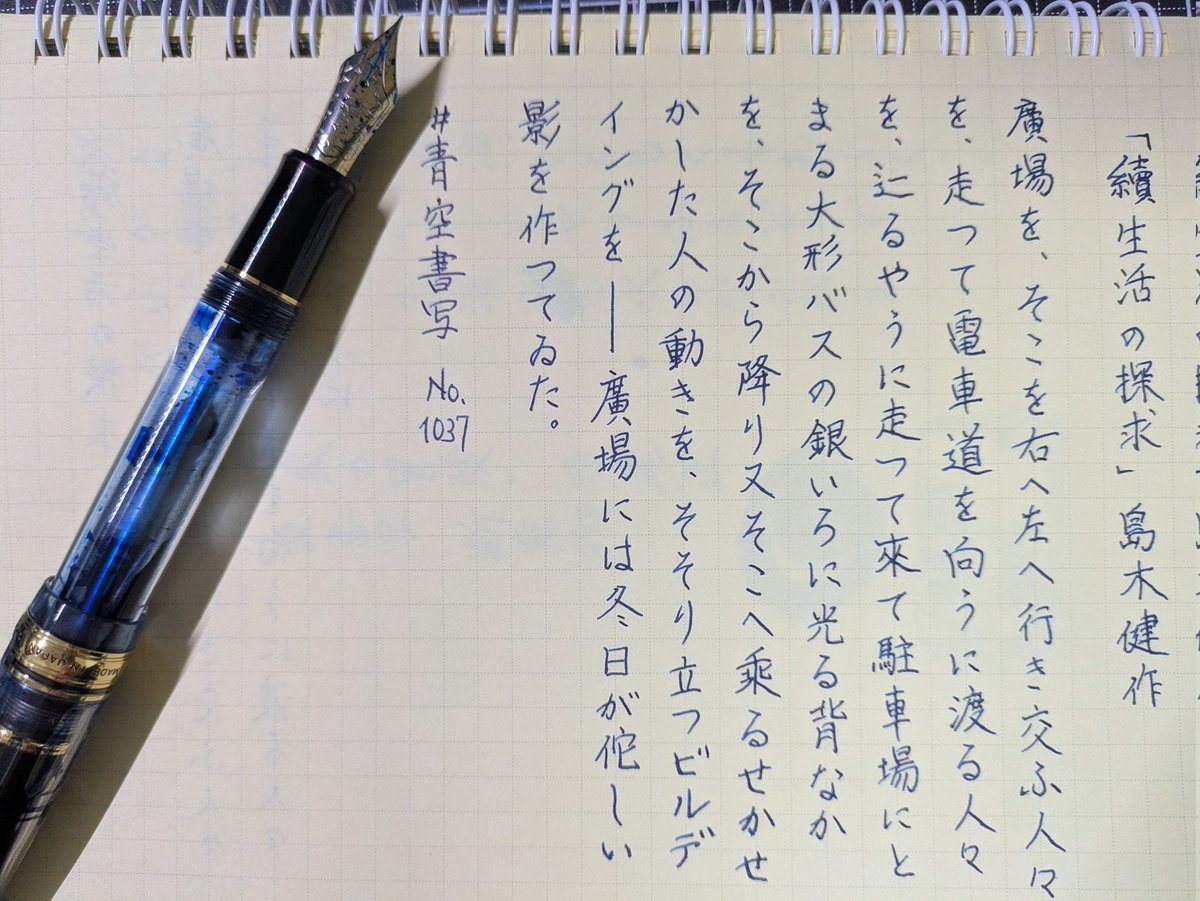 「續生活の探求」島木健作
廣場を、そこを右へ左へ行き交ふ人々
を、走つて電車道を向うに渡る人々
を、辷るやうに走つて來て駐車場にと
まる大形バスの銀いろに光る背なか
を、そこから降り又そこへ乘るせかせ
かした人の動きを、そそり立つビルデ
イングを――廣場には冬日が佗しい
影を作つてゐた。
#青空書写 No.
1037
MADE IN JAPAN